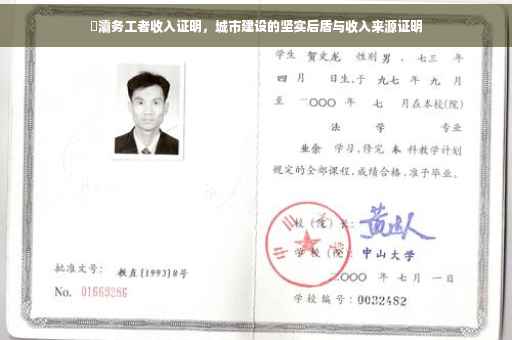 灞务工者收入证明，城市建设的坚实后盾与收入来源证明
学生 贺文龙 性别 男，七三 年
四 月 日生,于 九七 年 九 月
至 二〇〇〇 年 七 月在本校(院)
法 学 专业
业余 学习,修完 本 科教学计划
规定的全部课程,成绩合格,准予毕业。
校(院)长:
学校(院): 中山大学
二〇〇〇 年 七 月 一 日
学校编号: 0032482
批准文号: 教直[1993]8号
No. 01669286